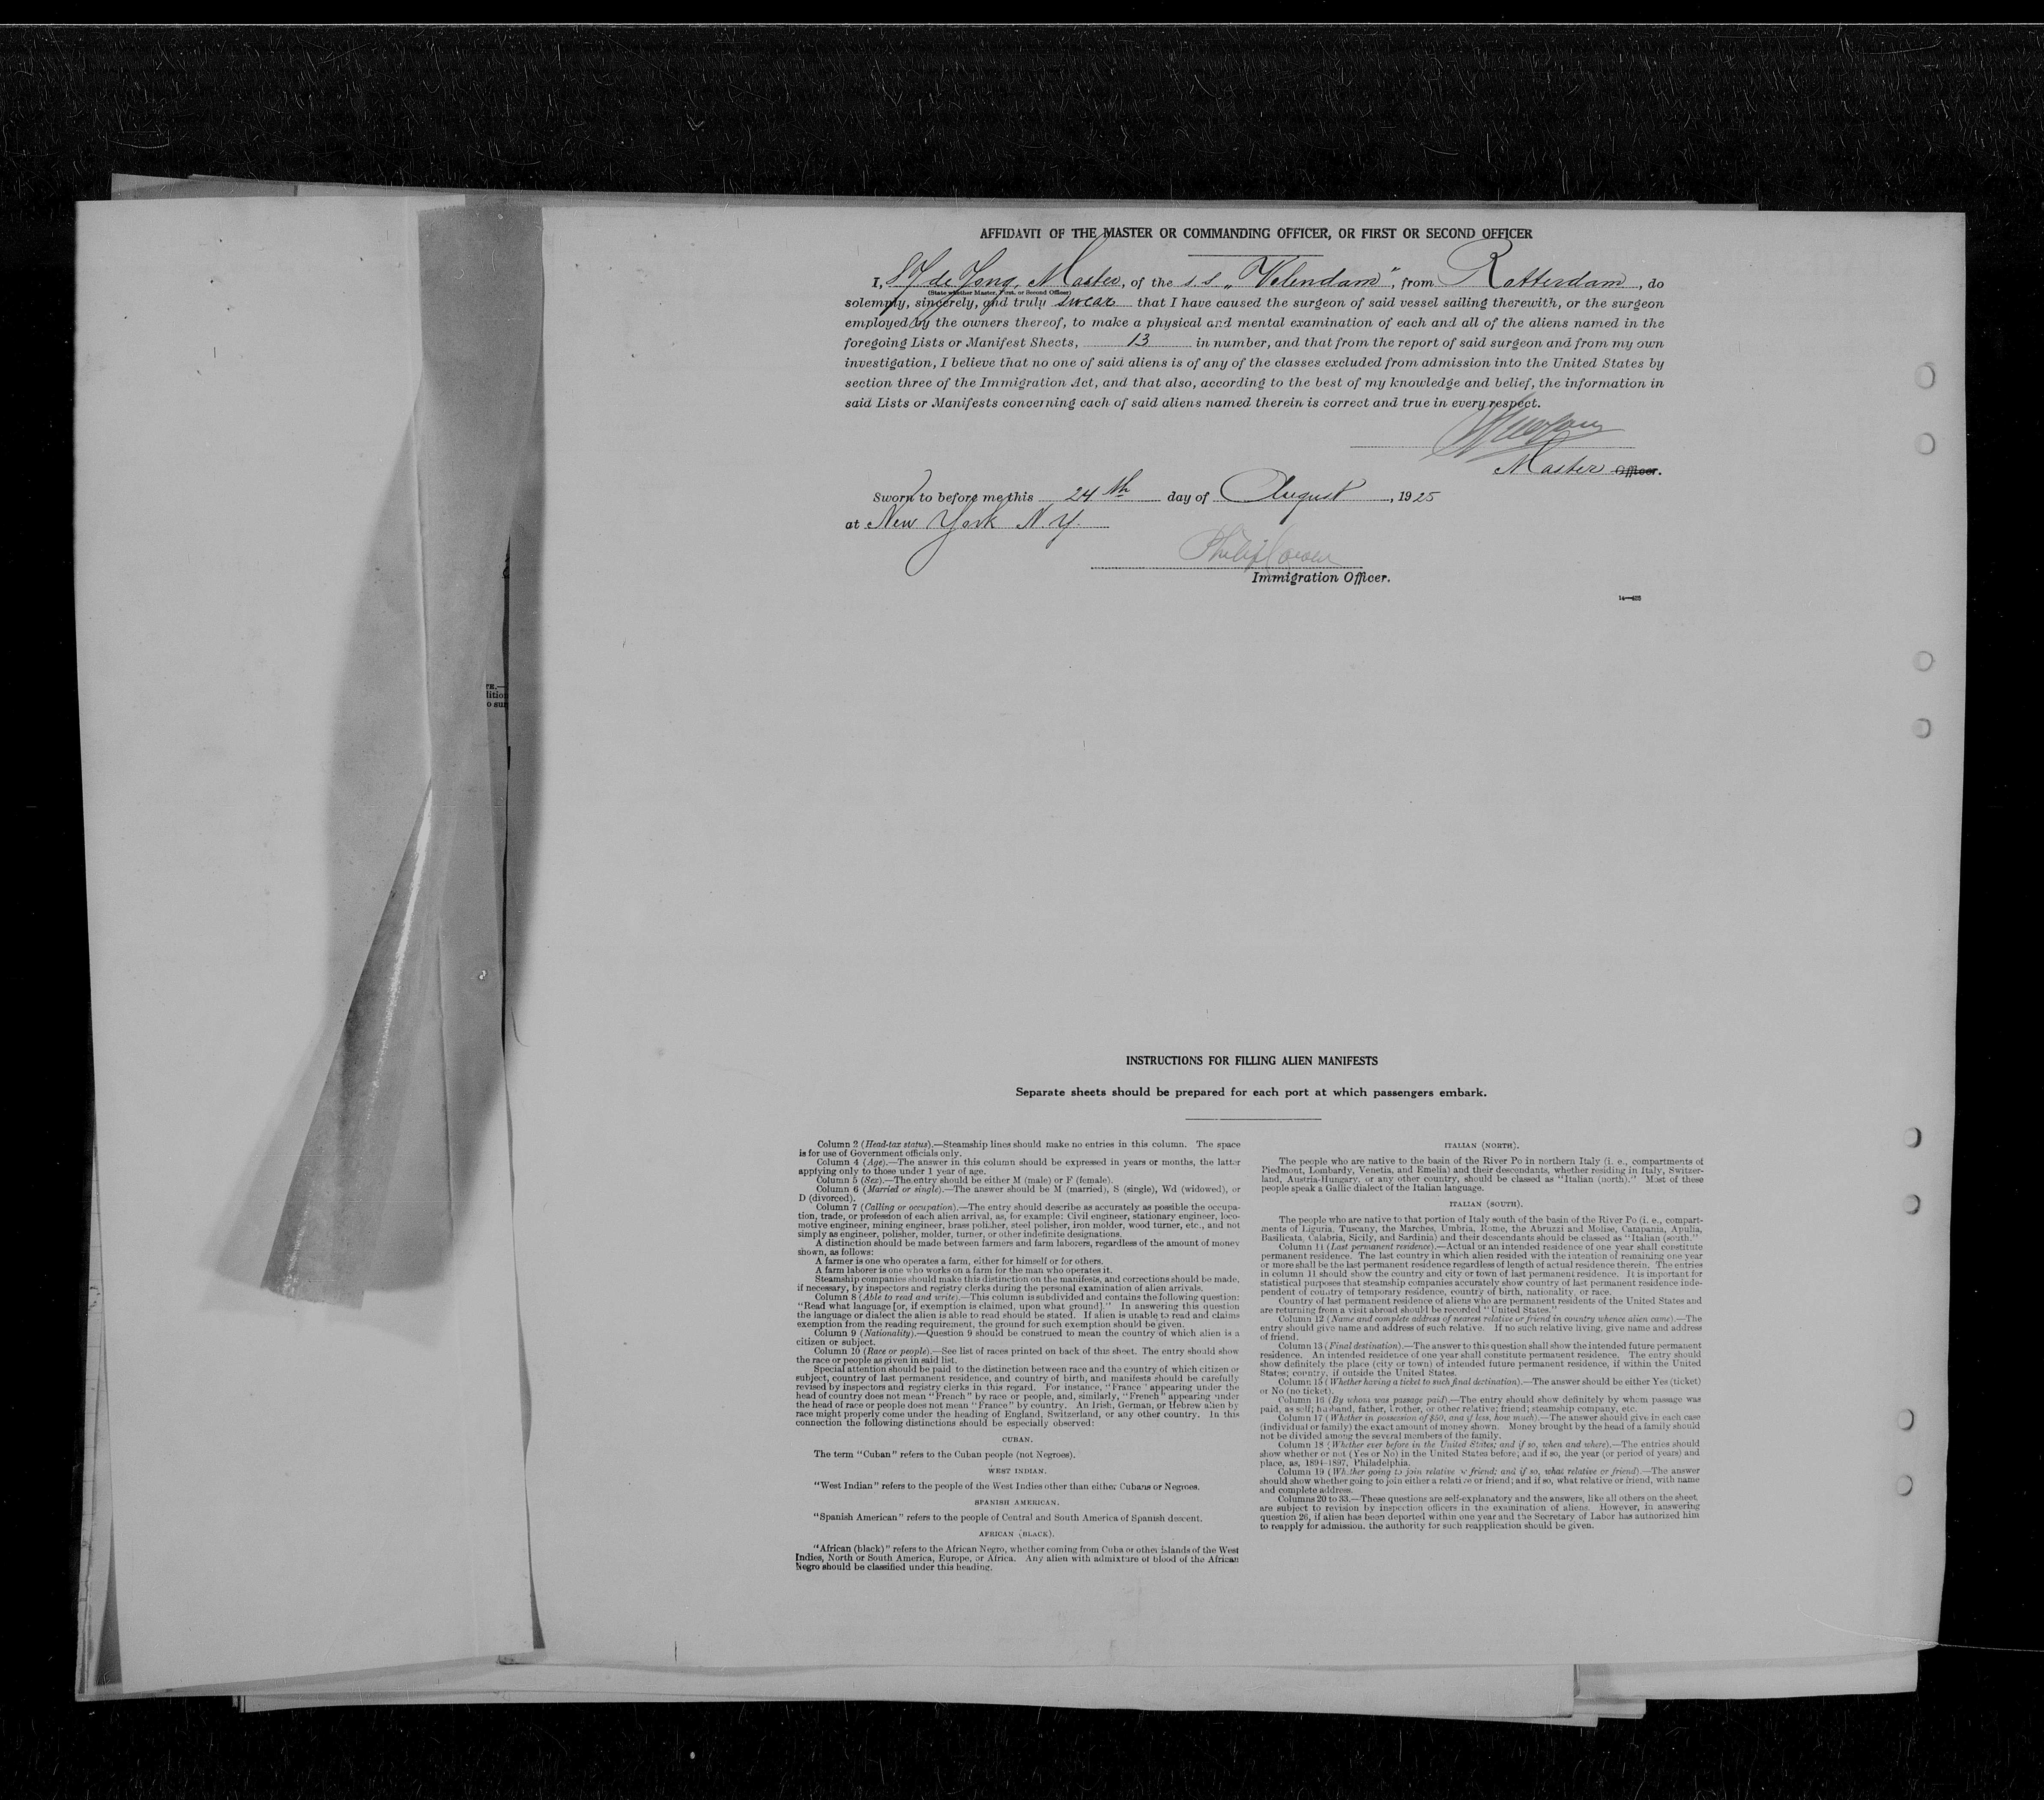 AFFIDAVIT OF THE MASTER OR COMMANDING OFFICER, OR FIRST OR SECOND OFFICER
I, de Jong, Master, of the s.s. „Volendam", from Rotterdam, do
(State whether Master, First, or Second Officer)
solemnly, sincerely, and truly swear that I have caused the surgeon of said vessel sailing therewith, or the surgeon
employed by the owners thereof, to make a physical and mental examination of each and all of the aliens named in the
foregoing Lists or Manifest Sheets, 13 in number, and that from the report of said surgeon and from my own
investigation, I believe that no one of said aliens is of any of the classes excluded from admission into the United States by
section three of the Immigration Act, and that also, according to the best of my knowledge and belief, the information in
said Lists or Manifests concerning each of said aliens named therein is correct and true in every respect.
Master Officer.
Sworn to before me this 24th day of August, 1925
at New York N.Y.
Philip Cowen
Immigration Officer.
TE.—
litio
o su
INSTRUCTIONS FOR FILLING ALIEN MANIFESTS
Separate sheets should be prepared for each port at which passengers embark.
Column 2 (Head-tax status).—Steamship lines should make no entries in this column. The space
is for use of Government officials only.
Column 4 (Age).—The answer in this column should be expressed in years or months, the latter
applying only to those under 1 year of age.
Column 5 (Sex).—The entry should be either M (male) or F (female).
Column 6 (Married or single).—The answer should be M (married), S (single), Wd (widowed), or
D (divorced).
Column 7 (Calling or occupation).—The entry should describe as accurately as possible the occupa-
tion, trade, or profession of each alien arrival, as, for example: Civil engineer, stationary engineer, loco-
motive engineer, mining engineer, brass polisher, steel polisher, iron molder, wood turner, etc., and not
simply as engineer, polisher, molder, turner, or other indefinite designations.
A distinction should be made between farmers and farm laborers, regardless of the amount of money
shown, as follows:
A farmer is one who operates a farm, either for himself or for others.
A farm laborer is one who works on a farm for the man who operates it.
Steamship companies should make this distinction on the manifests, and corrections should be made,
if necessary, by inspectors and registry clerks during the personal examination of alien arrivals.
Column 8 (Able to read and write).—This column is subdivided and contains the following question:
"Read what language [or, if exemption is claimed, upon what ground]." In answering this question
the language or dialect the alien is able to read should be stated. If alien is unable to read and claims
exemption from the reading requirement, the ground for such exemption should be given.
Column 9 (Nationality).—Question 9 should be construed to mean the country of which alien is a
citizen or subject.
Column 10 (Race or people).—See list of races printed on back of this sheet. The entry should show
the race or people as given in said list.
Special attention should be paid to the distinction between race and the country of which citizen or
subject, country of last permanent residence, and country of birth, and manifests should be carefully
revised by inspectors and registry clerks in this regard. For instance, "France" appearing under the
head of country does not mean "French" by race or people, and, similarly, "French" appearing under
the head of race or people does not mean "France" by country. An Irish, German, or Hebrew alien by
race might properly come under the heading of England, Switzerland, or any other country. In this
connection the following distinctions should be especially observed:
CUBAN.
The term "Cuban" refers to the Cuban people (not Negroes).
WEST INDIAN.
"West Indian" refers to the people of the West Indies other than either Cubans or Negroes.
SPANISH AMERICAN.
"Spanish American" refers to the people of Central and South America of Spanish descent.
AFRICAN (BLACK).
"African (black)" refers to the African Negro, whether coming from Cuba or other islands of the West
Indies, North or South America, Europe, or Africa. Any alien with admixture of blood of the African
Negro should be classified under this heading.
ITALIAN (NORTH).
The people who are native to the basin of the River Po in northern Italy (i. e., compartments of
Piedmont, Lombardy, Venetia, and Emelia) and their descendants, whether residing in Italy, Switzer-
land, Austria-Hungary, or any other country, should be classed as "Italian (north)." Most of these
people speak a Gallic dialect of the Italian language.
ITALIAN (SOUTH).
The people who are native to that portion of Italy south of the basin of the River Po (i. e., compart-
ments of Liguria, Tuscany, the Marches, Umbria, Rome, the Abruzzi and Molise, Campania, Apulia,
Basilicata, Calabria, Sicily, and Sardinia) and their descendants should be classed as "Italian (south."
Column 11 (Last permanent residence).—Actual or an intended residence of one year shall constitute
permanent residence. The last country in which alien resided with the intention of remaining one year
or more shall be the last permanent residence regardless of length of actual residence therein. The entries
in column 11 should show the country and city or town of last permanent residence. It is important for
statistical purposes that steamship companies accurately show country of last permanent residence inde-
pendent of country of temporary residence, country of birth, nationality, or race.
Country of last permanent residence of aliens who are permanent residents of the United States and
are returning from a visit abroad should be recorded "United States."
Column 12 (Name and complete address of nearest relative or friend in country whence alien came).—The
entry should give name and address of such relative. If no such relative living, give name and address
of friend.
Column 13 (Final destination).—The answer to this question shall show the intended future permanent
residence. An intended residence of one year shall constitute permanent residence. The entry should
show definitely the place (city or town) of intended future permanent residence, if within the United
States; country, if outside the United States.
Column 15 (Whether having a ticket to such final destination).—The answer should be either Yes (ticket)
or No (no ticket).
Column 16 (By whom was passage paid).—The entry should show definitely by whom passage was
paid, as self; husband, father, brother, or other relative; friend; steamship company, etc.
Column 17 (Whether in possession of $50, and if less, how much).—The answer should give in each case
(individual or family) the exact amount of money shown. Money brought by the head of a family should
not be divided among the several members of the family.
Column 18 (Whether ever before in the United States; and if so, when and where).—The entries should
show whether or not (Yes or No) in the United States before; and if so, the year (or period of years) and
place, as, 1894-1897, Philadelphia.
Column 19 (Whether going to join relative or friend; and if so, what relative or friend).—The answer
should show whether going to join either a relative or friend; and if so, what relative or friend, with name
and complete address.
Columns 20 to 33.—These questions are self-explanatory and the answers, like all others on the sheet,
are subject to revision by inspection officers in the examination of aliens. However, in answering
question 26, if alien has been deported within one year and the Secretary of Labor has authorized him
to reapply for admission, the authority for such reapplication should be given.